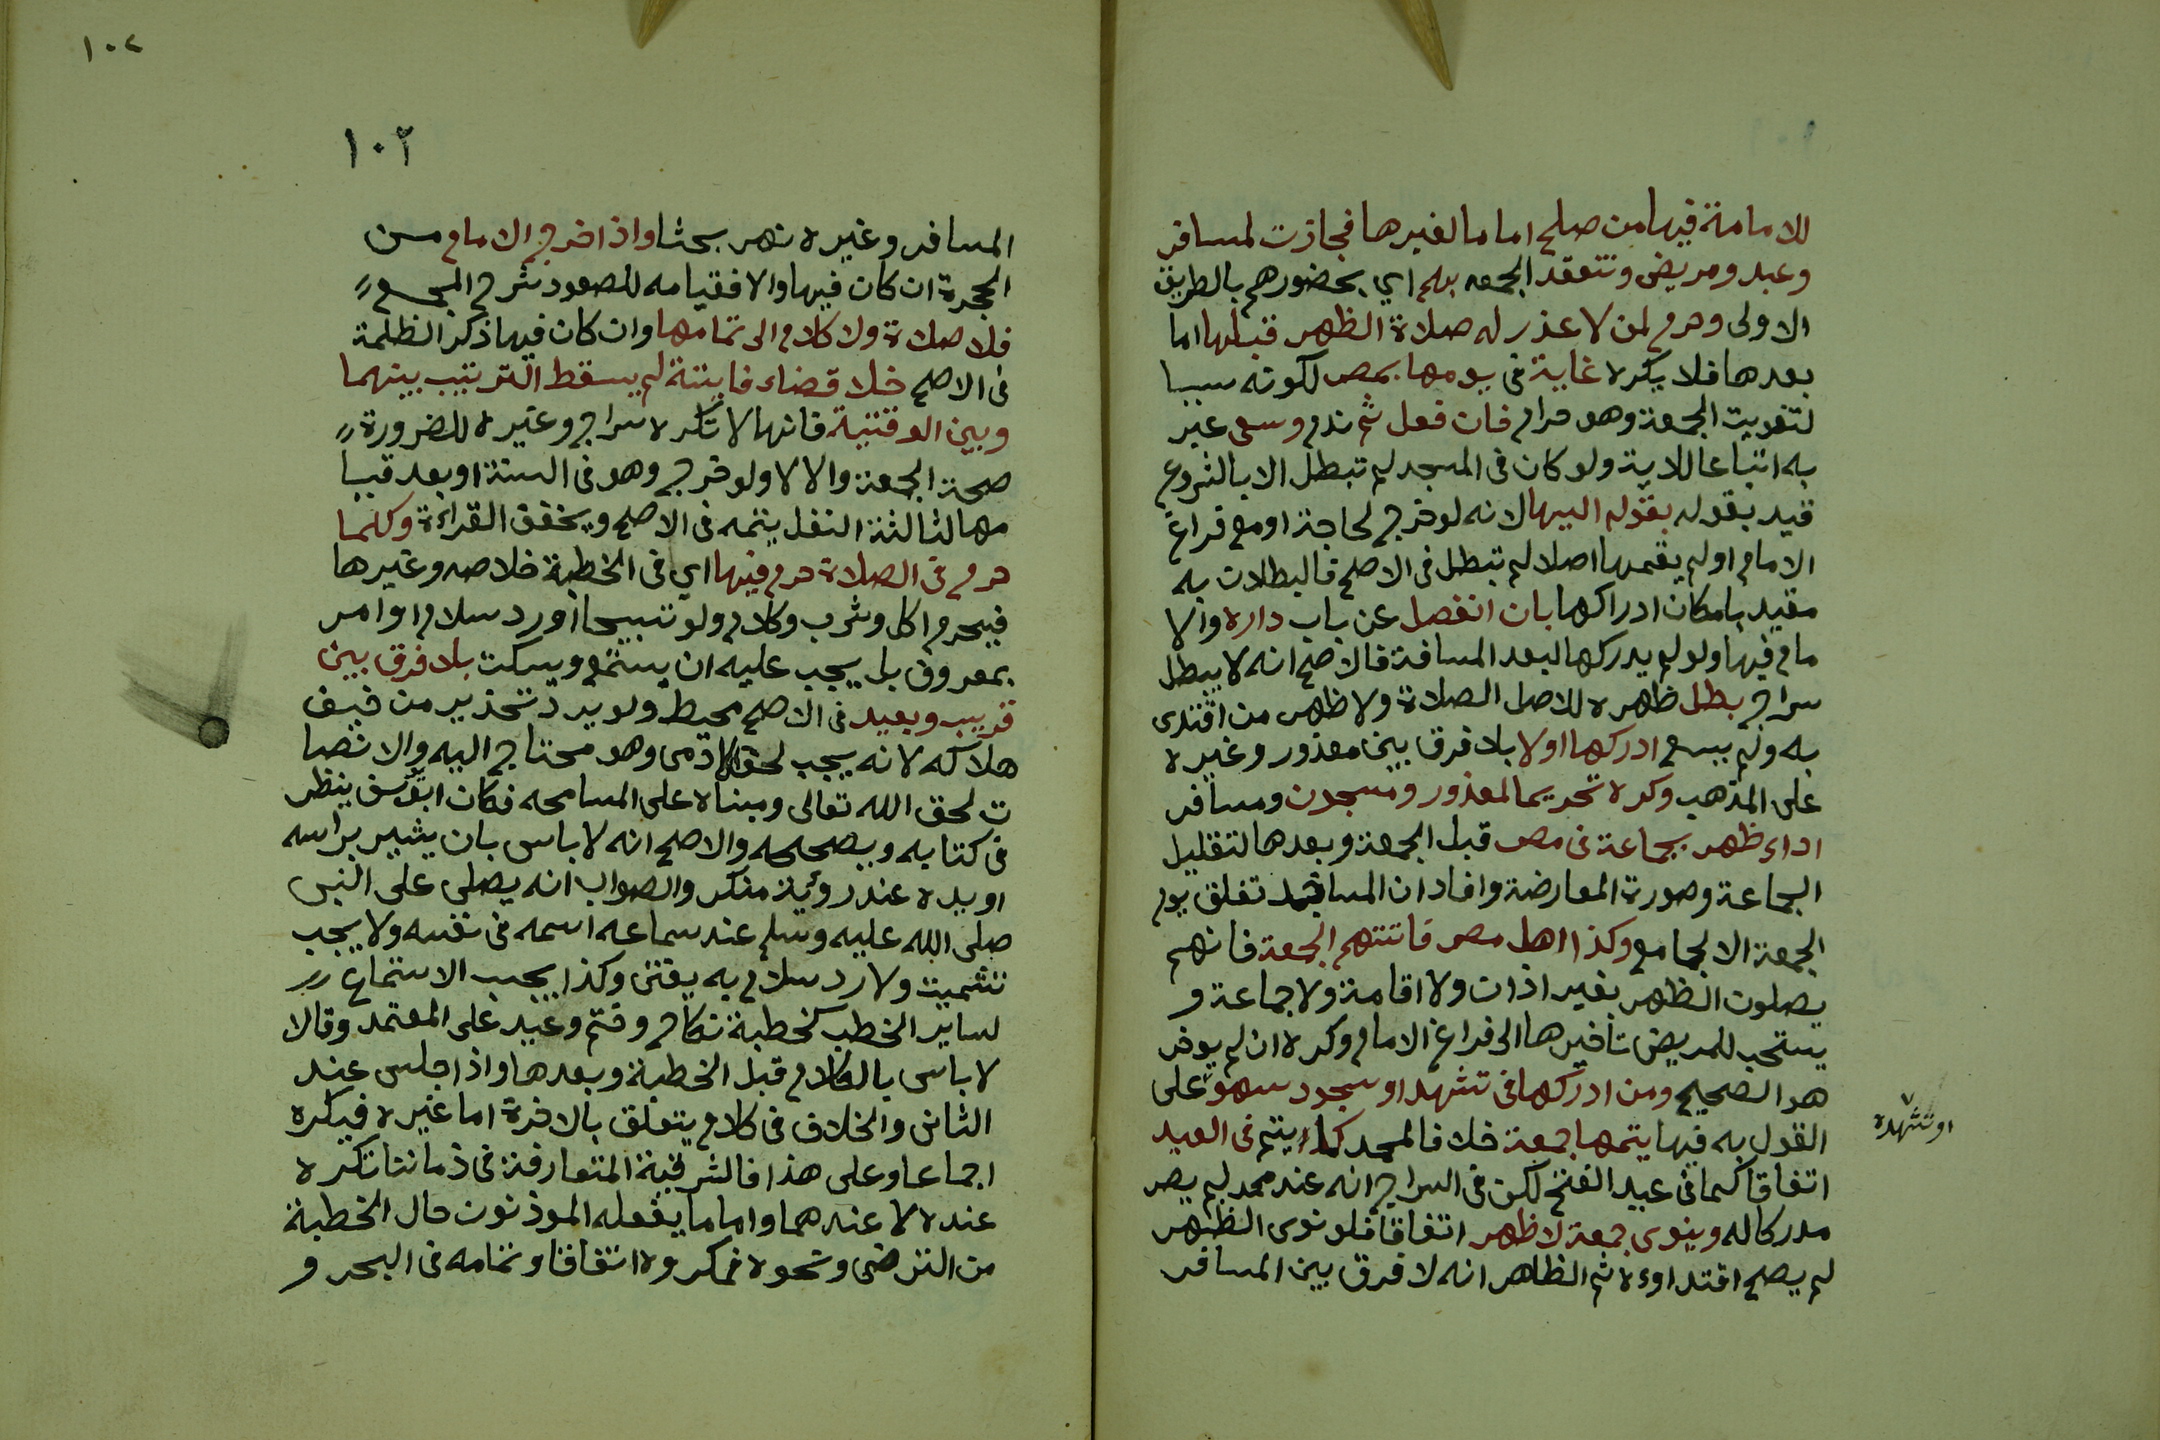 للامامة فيها من صلح اماما لغيرها فجازت لمسافر
وعبد ومريض وتنعقد الجمعه بهم اي بحضورهم بالطريق
الاولى وحرم لمن لا عذر له صلاة الظهر قبلها اما
بعدها فلا يكره غاية في يومها بمصر لكونه سببا
لتفويت الجمعة وهو حرام فان فعل ثم ندم وسعى عبر
به اتباعا للاية ولو كان في المسجد لم تبطل الا بالشروع
قيد بقوله بقوله اليها لانه لو خرج لحاجة او مع فراغ
الامام او لم يقمها اصلا لم تبطل في الاصح فالبطلان به
مقيد بامكان ادراكها بان انفصل عن باب داره والا
مام فيها ولو لم يدركها لبعد المسافة فالاصح انه لا يبطل
سراج بطل ظهره للاصل الصلاة ولا ظهر من اقتدى
به ولم يسع ادركها اولا بلا فرق بين معذور وغيره
على المذهب وكره تحريما لمعذور ومسجون ومسافر
اداء ظهر بجماعة في مصر قبل الجمعة وبعدها لتقليل
الجماعة وصورة المعارضة وافاد ان المساجد تغلق يوم
الجمعة الا الجامع وكذا اهل مصر فاتتهم الجمعة فانهم
يصلون الظهر بغير اذان ولا اقامة ولا جماعة و
يستحب للمريض تأخيرها الى فراغ الامام وكره ان لم يوخر
هو الصحيح ومن ادركها في تشهد او سجود سهو على
او تشهده
القول به فيها يتمها جمعة خلافا لمحمد كما يتم في العيد
اتفاقا كما في عيد الفتح لكن في السراج انه عند محمد لم يصر
مدركا له وينوى جمعة لا ظهر اتفاقا فلو نوى الظهر
لم يصح اقتداوه ثم الظاهر انه لا فرق بين المسافر
١٠٢
١٠٢
المسافر وغيره نهر بحثا واذا خرج الامام من
الحجرة ان كان فيها والا فقيامه للصعود شرح المجمع
فلا صلاة ولا كلام الى تمامها وان كان فيها ذكر الظلمة
في الاصح خلا قضاء فايتة لم يسقط الترتيب بينهما
وبين الوقتية فانها لا تكره سراج وغيره للضرورة
صحة الجمعة والا لا ولو خرج وهو في السنة او بعد قيا
مها لثالثة النفل يتمه في الاصح ويخفف القراءة وكلما
حرم في الصلاة حرم فيها اي في الخطبة خلاصه وغيرها
فيحرم اكل وشرب وكلام ولو تسبيحا او رد سلام او امر
بمعروف بل يجب عليه ان يستمع ويسكت بلا فرق بين
قريب وبعيد في الاصح محيط ولا يرد تحذير من خيف
هلاكه لانه يجب لحق الادمى وهو محتاج اليه والانصا
ت لحق الله تعالى ومبناه على المسامحه فكان ابو يوسف ينظر
في كتابه ويصححه والاصح انه لا باس بان يشير براسه
او يده عند روية منكر والصواب انه يصلى على النبى
صلى الله عليه وسلم عند سماعه اسمه في نفسه ولا يجب
تشميت ولا رد سلام به يفتى وكذا يجب الاستماع
لساير الخطب كخطبة نكاح وختم وعيد على المعتمد وقالا
لا باس بالكلام قبل الخطبة وبعدها واذا جلس عند
الثانى والخلاف في كلام يتعلق بالاخرة اما غيره فيكره
اجماعا وعلى هذا فالترقية المتعارفة في زماننا تكره
عنده لا عندهما واما ما يفعله الموذنون حال الخطبة
من الترضى ونحوه فمكروه اتفاقا وتمامه في البحر و